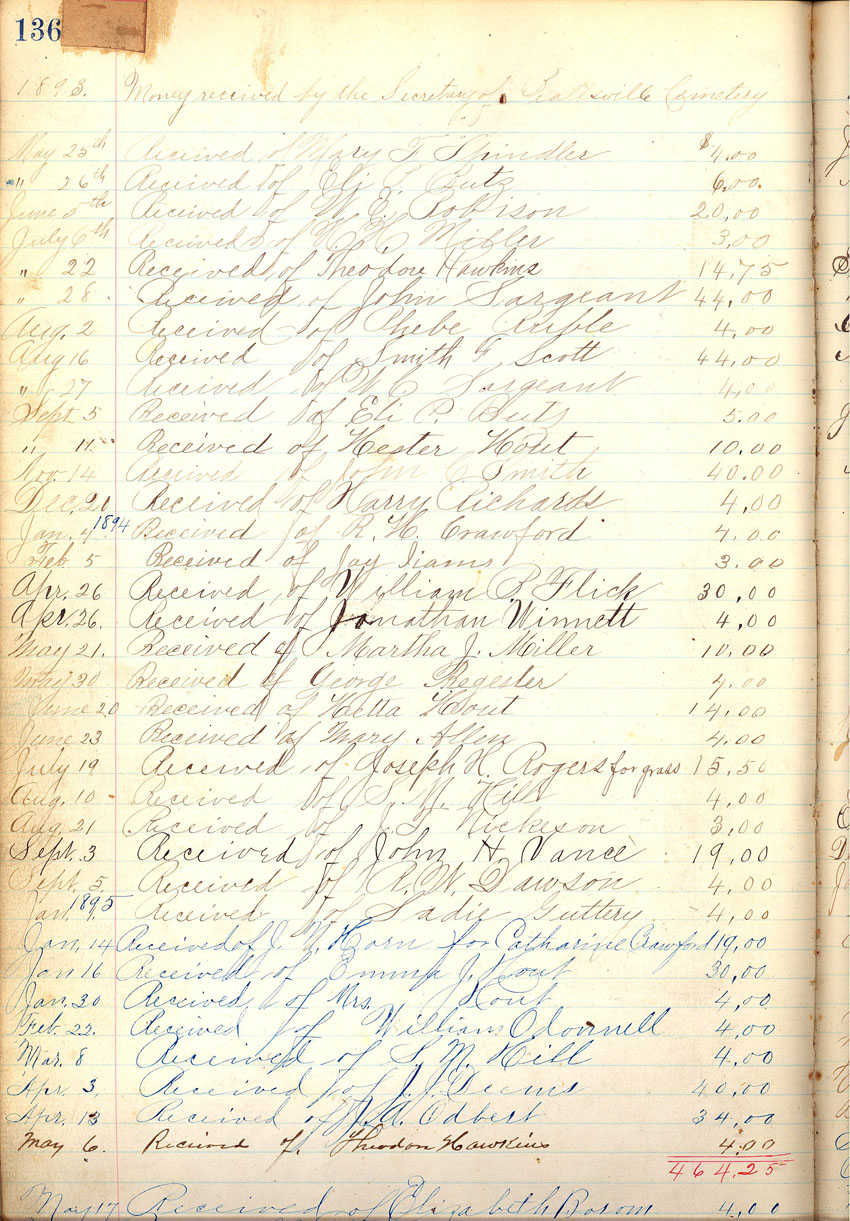 136
1893. Money received by the Secretary of Beallsville Cemetery
May 25th Received of Mary F Shindler $4.00
" 26th Received of Eli P. Butz 6.00.
June 5th Received of W. E. Robison 20,00
July 6th Received of Miller 3,00
" 22 Received of Theodore Hawkins 14,75
" 28. Received of John Sargeant 44,00
Aug. 2 Received of Phebe Ruble 4,00
Aug 16 Received of Smith F, Scott 44,00
" 27 Received of W C Sargeant 4,00
Sept 5 Received of Eli P. Butz 5.00
" 11. Received of Hester Hout 10.00
Nov. 14 Received of John C Smith 40.00
Dec. 20 Received of Harry Richards 4,00
Jan. 4 1894 Received of R. H. Crawford 4.00
Feb. 5 Received of Jay Iiams 3.00
Apr. 26 Received of William B. Flick 30,00
Apr. 26. Received of Jonathan Winnett 4,00
May 21. Received of Martha J. Miller 10.00
May 30 Received of George Regester 4.00
June 20 Received of Hetta Hout 14,00
June 23 Received of Mary Allen 4.00
July 19 Received of Joseph H. Rogers for grass 15,50
Aug. 10 Received of S. N. Hill 4,00
Aug. 21 Received of Nickeson 3,00
Sept. 3 Received of John H. Vance 19,00
Sept. 5. Received of R. W. Dawson 4,00
Jan. 1895 Received of Sadie Guttery 4,00
Jan, 14 Received of J. W. Horn for Catharine Crawford 19,00
Jan 16 Received of Emma J. Hout 30,00
Jan. 30 Received of Mrs. Hout 4,00
Feb. 22. Received of William Odonnell 4,00
Mar. 8 Received of S. N. Hill 4.00
Apr. 3. Received of J. J. Deems 40,00
Apr. 13 Received of J. A. Odbert 34,00
May 6. Received of. Theodore Hawkins 4.00
464.25
May 17 Received of Elizabeth Bosom 4,00